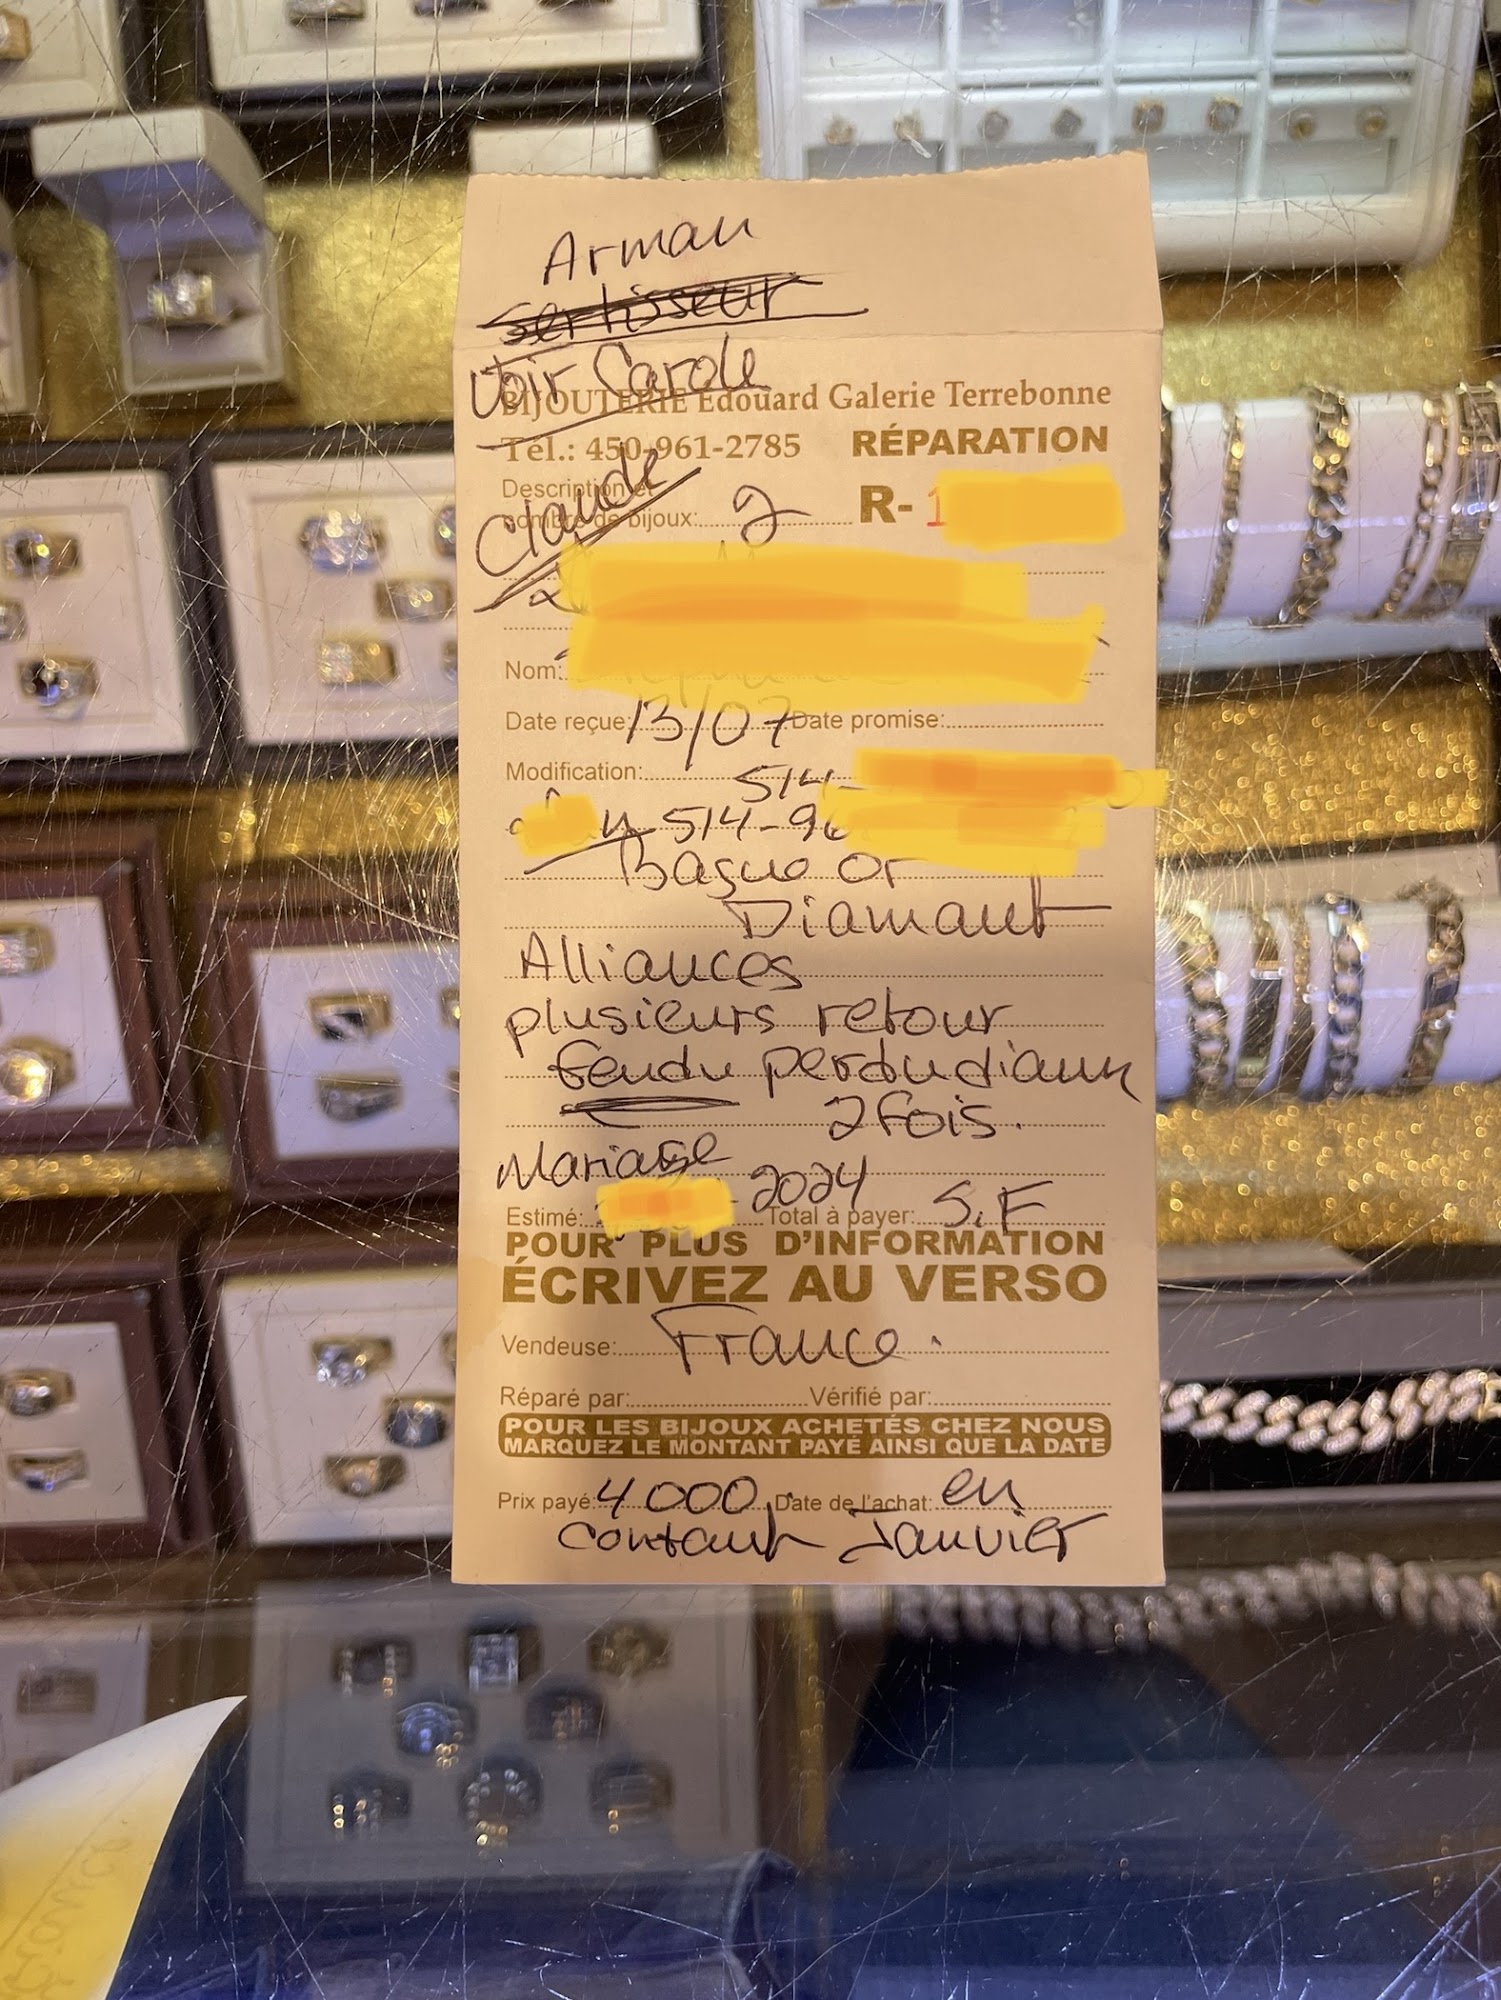 Arman
sertisseur
Voir Carole
BIJOUTERIE Edouard Galerie Terrebonne
Tél.: 450-961-2785 RÉPARATION
Claude
Description et
nombre de bijoux: 2 R- 1
Nom:
Date reçue: 13/07 Date promise:
Modification: 514-
514-96
Bague or
Diamant
Alliances
plusieurs retour
fendu perdu diam
2 fois.
Mariage
2024
Estimé: Total à payer: S.F
POUR PLUS D'INFORMATION
ÉCRIVEZ AU VERSO
Vendeuse: France.
Réparé par: Vérifié par:
POUR LES BIJOUX ACHETÉS CHEZ NOUS
MARQUEZ LE MONTANT PAYÉ AINSI QUE LA DATE
Prix payé: 4000, Date de l'achat: en
contant Janvier